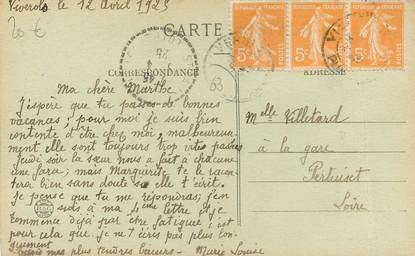 Viverols, le 12 Avril 1925
20 €
CARTE
CORRESPONDANCE
ADRESSE
63
5c 5c 5c
POSTES POSTES POSTES
Ma chère Marthe
J'espère que tu passes de bonnes
vacances; pour moi je suis bien
contente d'être chez moi, malheureu-
ment elle sont toujours trop vite passées
Jeudi soir la sœur nous a fait à chacune
une farce; mais Marguerite te le racon-
tera bien sans doute si elle t'écrit.
Je pense que tu me répondras; j'en
suis à ma 4ème lettre et je
commence déjà par être fatiguée; c'est
pour cela que je ne t'écris pas plus lon-
guement
mes plus tendres baisers - Marie Louise
Melle Villetard
à la gare
Pertuiset
Loire